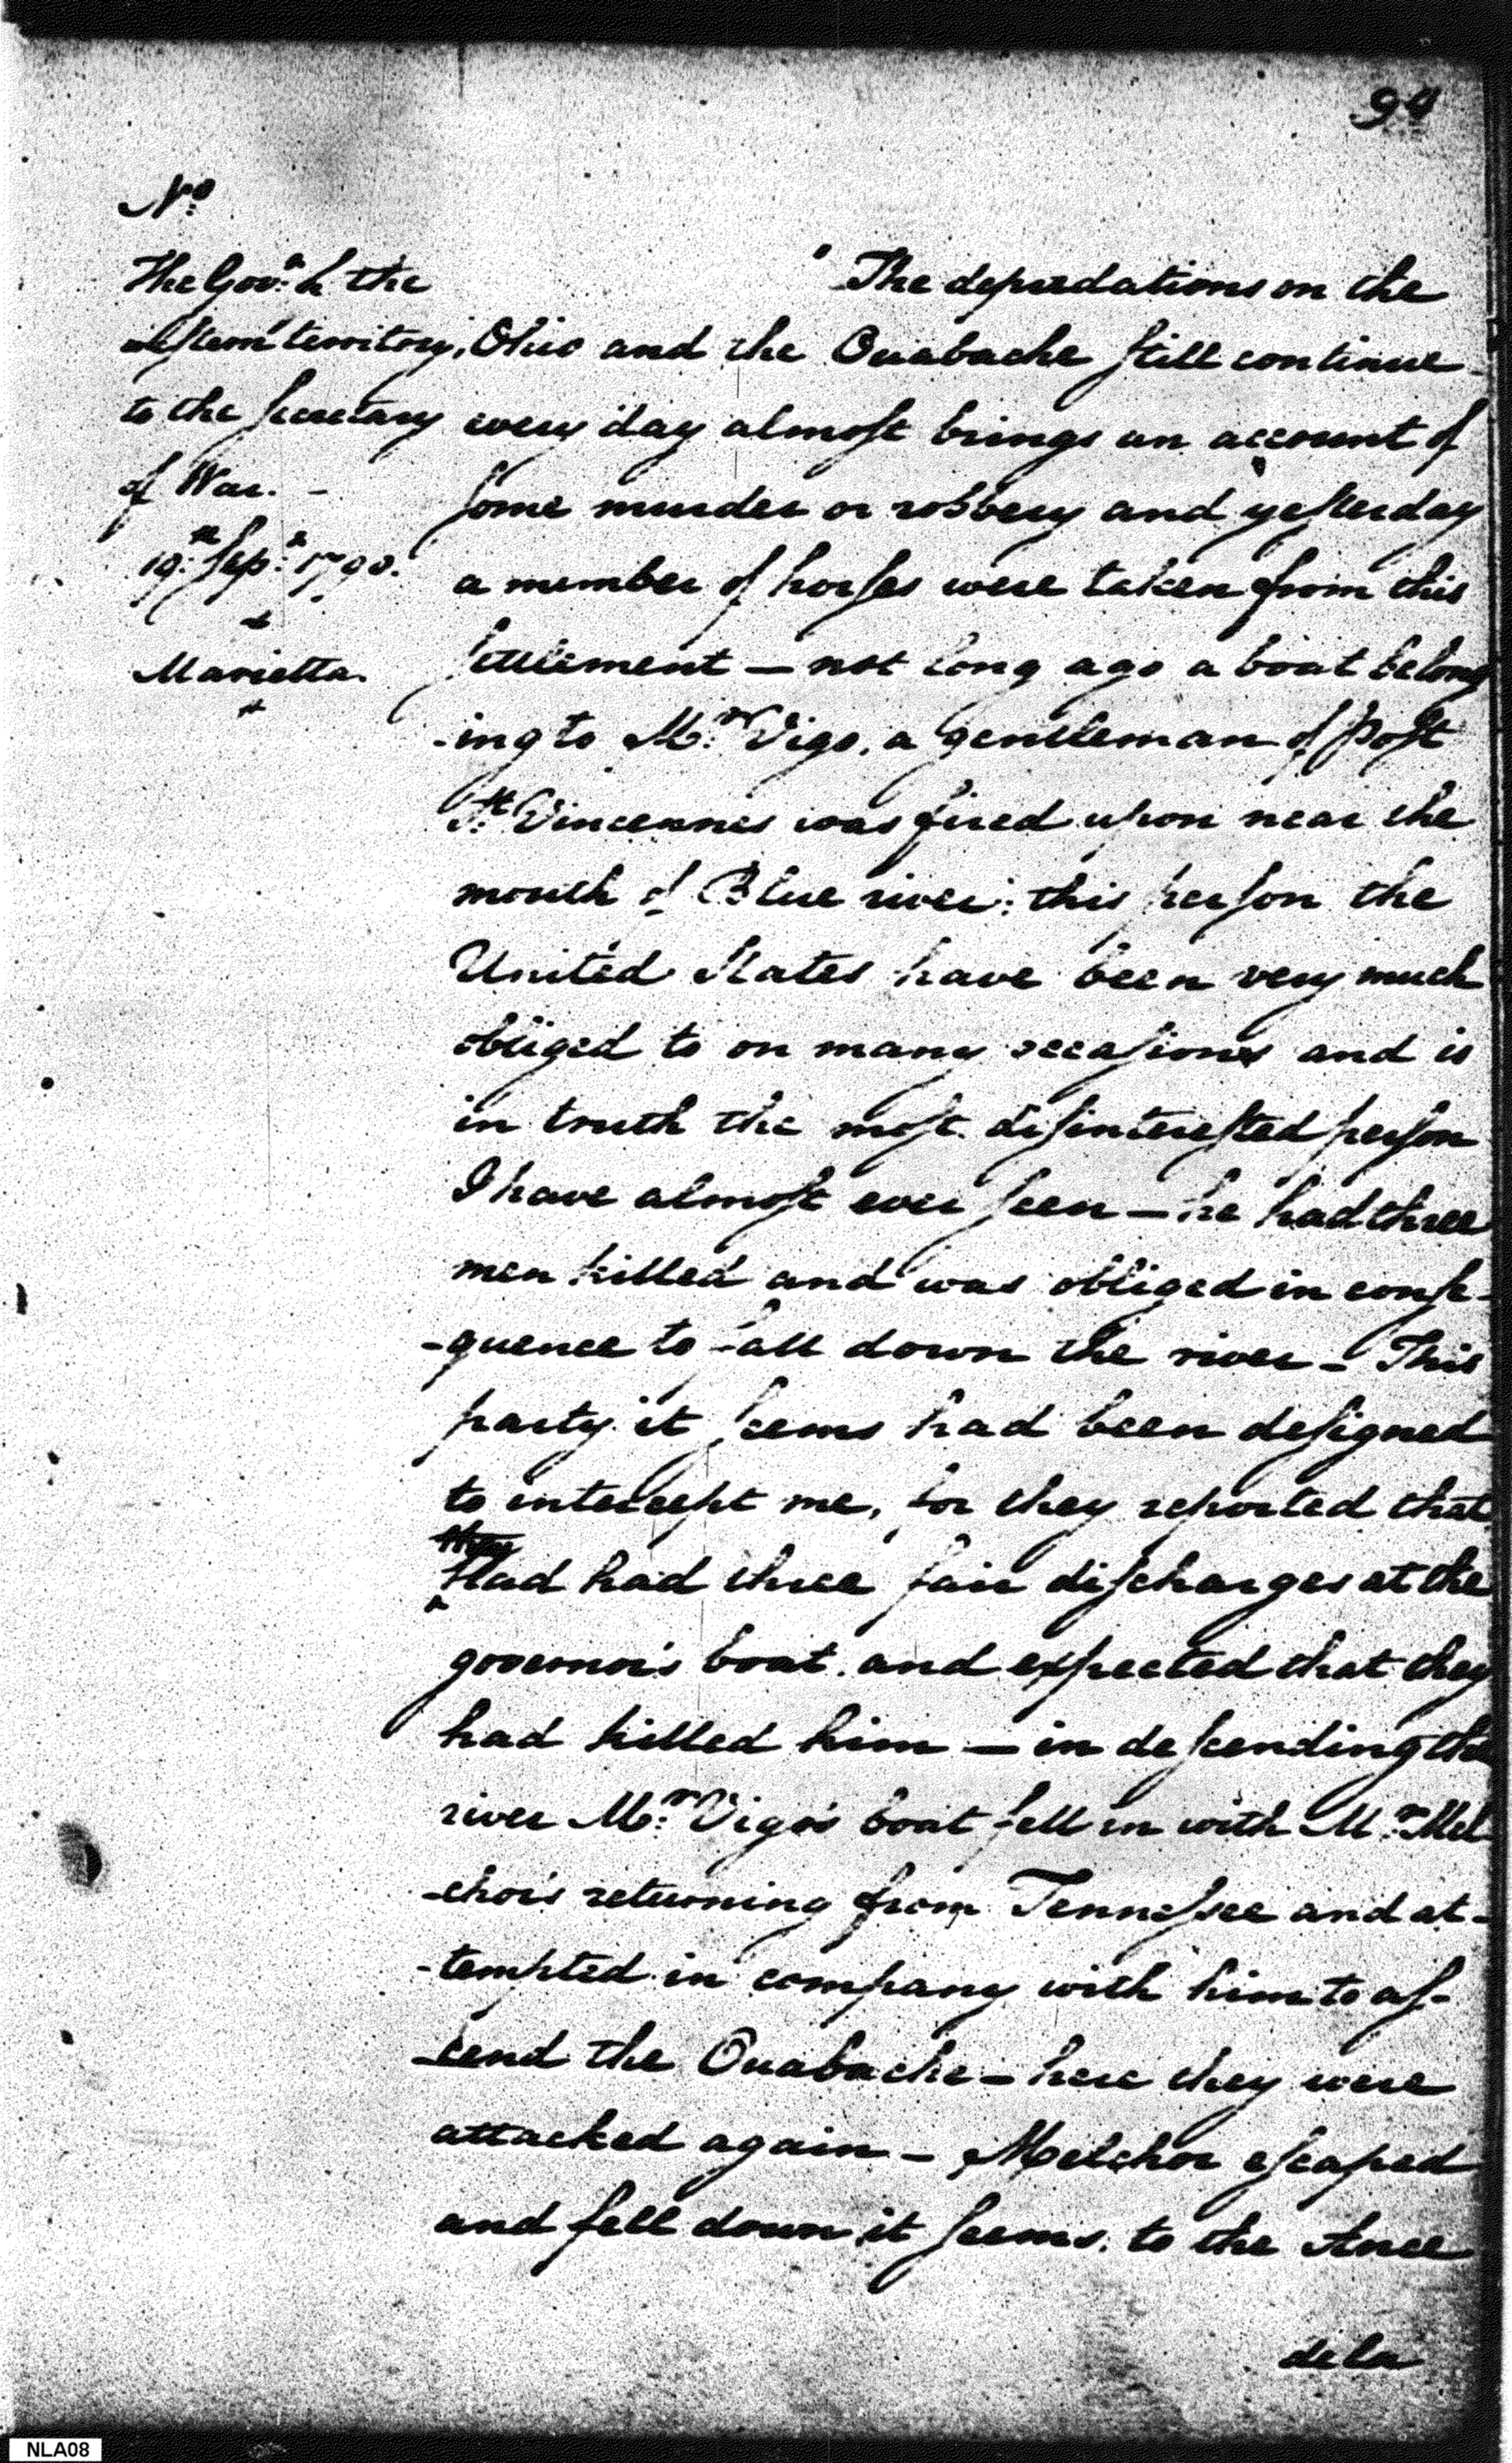 94
No
The Govr of the
western territory,
to the secretary
of War. -
19th Sepr 1790.
Marietta.
"The depredations on the
Ohio and the Ouabache still continue
every day almost brings an account of
some murder or robbery and yesterday
a number of horses were taken from this
settlement — not long ago a boat belong
-ing to Mr Vigo, a gentleman of Post
St Vincennes was fired upon near the
mouth of Blue river: this person the
United States have been very much
obliged to on many occasions and is
in truth the most disinterested person
I have almost ever seen — he had three
men killed and was obliged in conse-
-quence to fall down the river — This
party it seems had been designed
to intercept me, for they reported that
they
Had had three fair discharges at the
governor's boat and expected that they
had killed him — in descending the
river Mr Vigo's boat fell in with Mr Mel
-chor's returning from Tennessee and at-
-tempted in company with him to as-
-cend the Ouabache — here they were
attacked again — Melchor escaped
and fell down it seems to the Ance
de la
NLA08